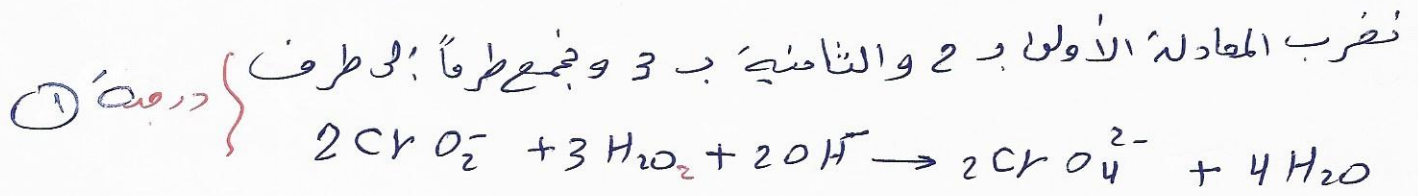 نضرب المعادلة الأولى بـ 2 والثانية بـ 3 ونجمع طرفاً إلى طرف
2CrO₂⁻ + 3H₂O₂ + 2OH⁻ → 2CrO₄²⁻ + 4H₂O
درجة ①